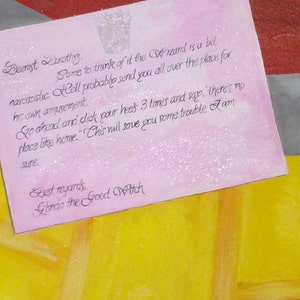 Dearest Dorothy,
Come to think of it the Wizard is a bit
narcissistic. He'll probably send you all over the place for
his own amusement.
Go ahead and click your heels 3 times and sign, "there's no
place like home." This will save you some trouble I am
sure.
Best regards,
Glinda the Good Witch